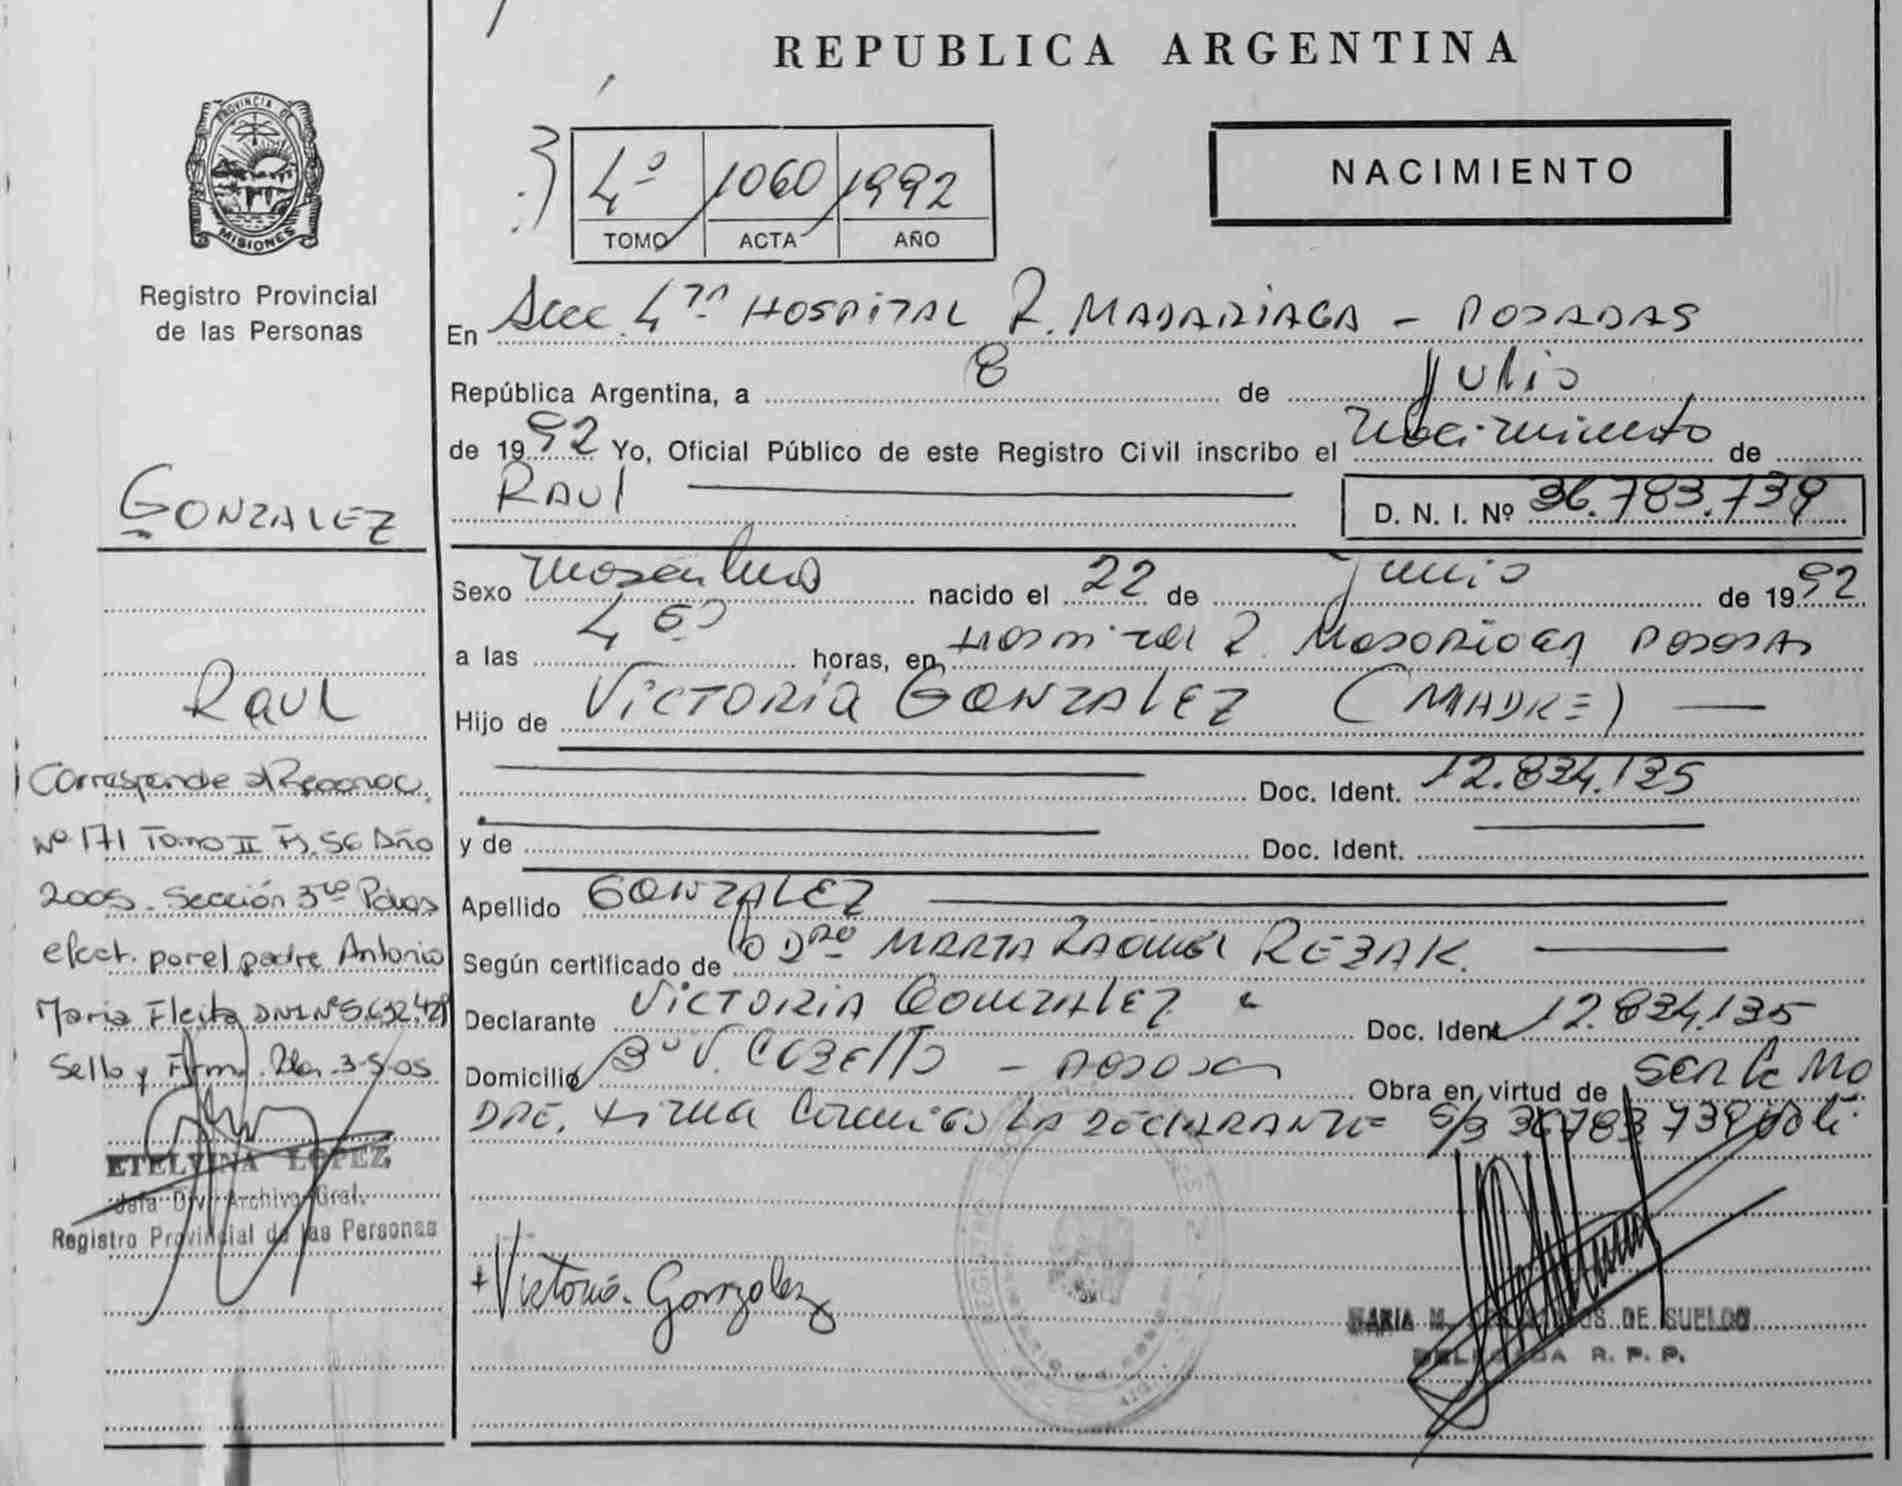 REPUBLICA ARGENTINA
PROVINCIA DE
MISIONES
Registro Provincial
de las Personas
4º 1060 1992
TOMO ACTA AÑO
NACIMIENTO
En Secc. 4ta HOSPITAL R. MADARIAGA - POSADAS
República Argentina, a 8 de Julio
de 1992 Yo, Oficial Público de este Registro Civil inscribo el nacimiento de
RAUL
D. N. I. Nº 36.783.739
Sexo masculino nacido el 22 de junio de 1992
a las 4 horas, en Hospital R. Madariaga Posadas
Hijo de VICTORIA GONZALEZ (MADRE)
Doc. Ident. 12.834.135
y de Doc. Ident.
Apellido GONZALEZ
Según certificado de MARTA RAQUEL REZAK.
Declarante VICTORIA GONZALEZ Doc. Ident. 12.834.135
Domicilio Bº Posadas Obra en virtud de SER LA MA
DRE. Firma conmigo LA DECLARANTE S/B 36783739
Victoria Gonzalez
MARIA M. DE SUELDO
DELEGADA R. P. P.
GONZALEZ
Raul
Corresponde al Reconoc.
Nº 171 Tomo II Fº 56 Año
2005. Sección 3ra Pdas
efect. por el padre Antonio
Maria Fleita DNI Nº 5.632.429
Sello y Firma. 3-5-05
ETELVINA LOPEZ
Jefa Div. Archivo Gral.
Registro Provincial de las Personas